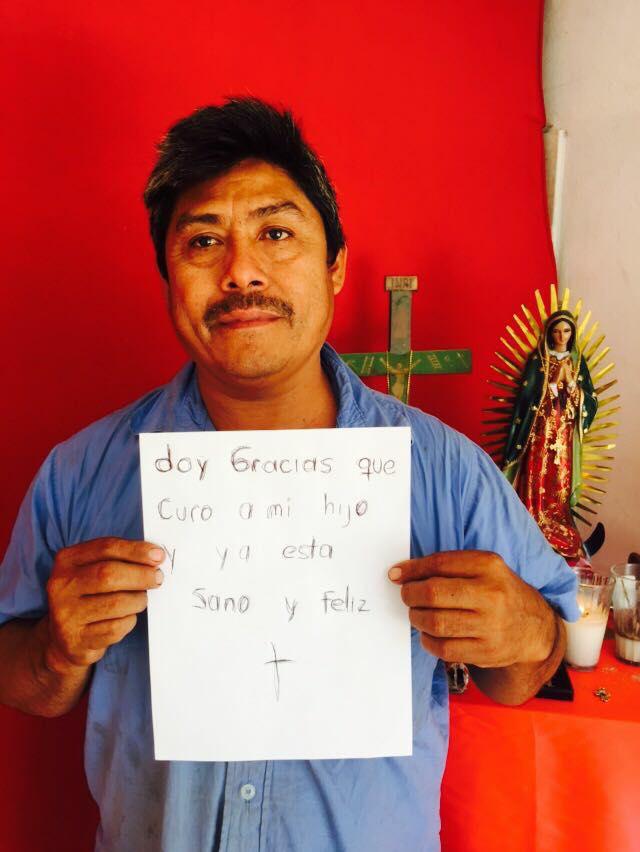 INRI
doy Gracias que
Curo a mi hijo
y ya esta
Sano y feliz